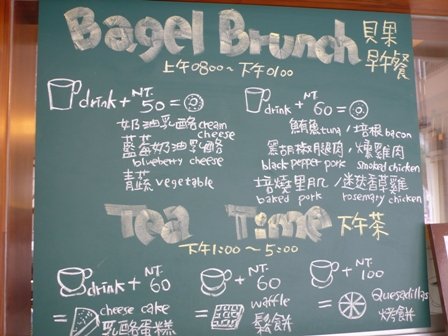 Bagel Brunch 貝果
早午餐
上午0800~下午0100
drink + NT. 50 =
奶油乳酪 cream cheese
藍莓奶油乳酪
blueberry cheese
青蔬 vegetable
drink + NT. 60 =
鮪魚 tuna / 培根 bacon
黑胡椒腿肉 / 燻雞肉
black pepper pork smoked chicken
培燒里肌 / 迷迭香草雞
baked pork rosemary chicken
Tea Time 下午茶
下午1:00~5:00
drink + NT. 60
= cheese cake
乳酪蛋糕
+ NT. 60
= waffle
鬆餅
+ NT. 100
= Quesadillas
烤餅